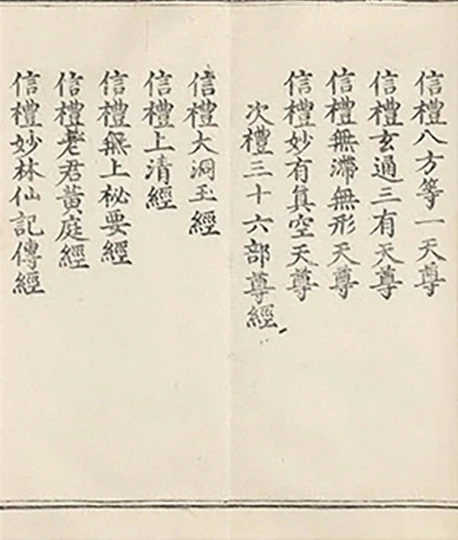 信禮八方等一天尊
信禮玄通三有天尊
信禮無滯無形天尊
信禮妙有真空天尊
次禮三十六部尊經
信禮大洞玉經
信禮上清經
信禮無上祕要經
信禮老君黃庭經
信禮妙林仙記傳經